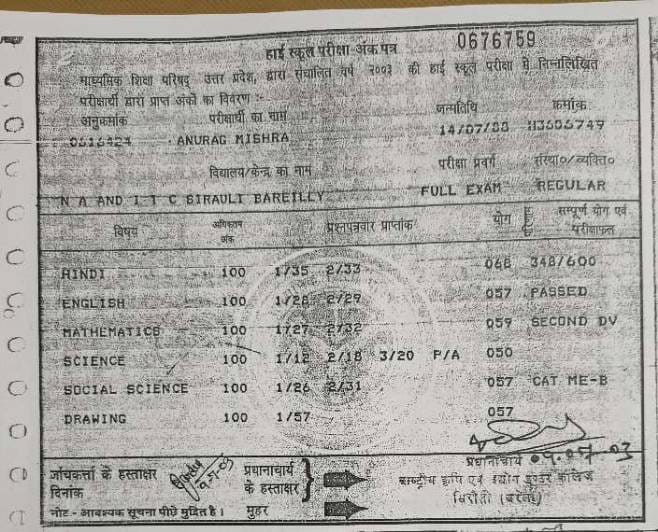 हाई स्कूल परीक्षा-अंक पत्र 0676759
माध्यमिक शिक्षा परिषद् उत्तर प्रदेश, द्वारा संचालित वर्ष २००३ की हाई स्कूल परीक्षा में निम्नलिखित
परीक्षार्थी द्वारा प्राप्त अंकों का विवरण :-
अनुक्रमांक परीक्षार्थी का नाम जन्मतिथि क्रमांक
0616424 ANURAG MISHRA 14/07/88 H3606749
विद्यालय/केन्द्र का नाम परीक्षा प्रवर्ग संस्था०/व्यक्ति०
N A AND I T C SIRAULI BAREILLY FULL EXAM REGULAR
विषय अधिकतम अंक प्रश्नपत्रवार प्राप्तांक योग सम्पूर्ण योग एवं परीक्षाफल
HINDI 100 1/35 2/33 068 348/600
ENGLISH 100 1/28 2/29 057 PASSED
MATHEMATICS 100 1/27 2/32 059 SECOND DV
SCIENCE 100 1/12 2/18 3/20 P/A 050
SOCIAL SCIENCE 100 1/26 2/31 057 CAT ME-B
DRAWING 100 1/57 057
09.07.03
प्रधानाचार्य
जांचकर्ता के हस्ताक्षर प्रधानाचार्य के हस्ताक्षर राष्ट्रीय कृषि एवं उद्योग इण्टर कालिज
दिनांक सिरौली (बरेली)
नोट - आवश्यक सूचना पीछे मुद्रित है। मुहर